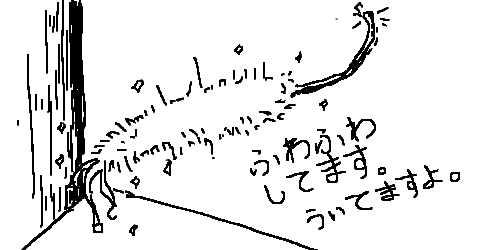 ふわふわ
してます。
ういてますよ。